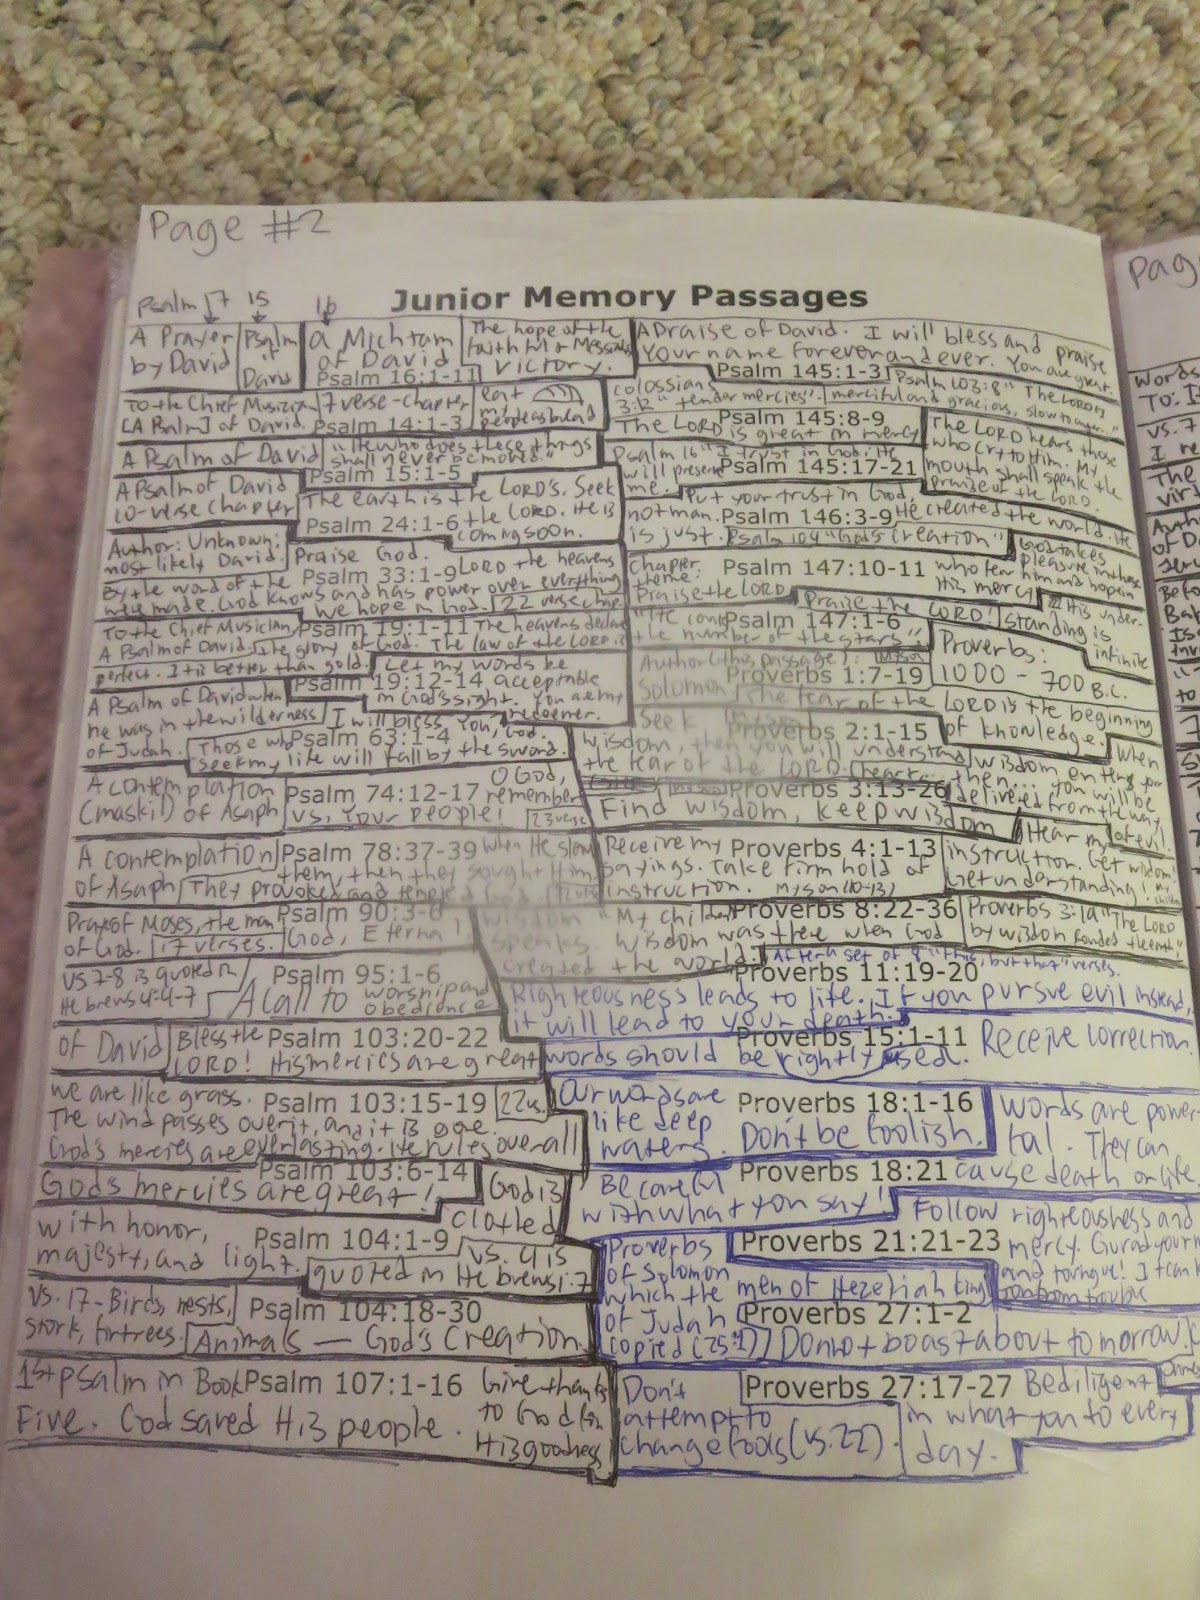 Page #2
Pag
Junior Memory Passages
Psalm 17 15 16
A Prayer by David
Psalm of David
a Michtam of David
The hope of the faithful & Messiah's victory.
Psalm 16:1-11
To the Chief Musician
[A Psalm] of David.
7 verse-chapter
eat my people as bread
Psalm 14:1-3
A Psalm of David
"He who does these things
shall never be moved."
Psalm 15:1-5
A Psalm of David
10-verse chapter
The earth is the LORD's. Seek
Psalm 24:1-6 the LORD. He is
coming soon.
Author: Unknown;
most likely David.
Praise God.
Psalm 33:1-9 LORD the heavens
By the word of the
were made. God knows and has power over everything
we hope in God. 22 verse chap.
To the Chief Musician
Psalm 19:1-11 The heavens declare
A Psalm of David the glory of God. The law of the LORD is
perfect. It is better than gold.
Let my words be
Psalm 19:12-14 acceptable
in God's sight. You are my
redeemer.
A Psalm of David when
he was in the wilderness
of Judah.
I will bless You, God.
Psalm 63:1-4
Those who
seek my life will fall by the sword.
A contemplation
(maskil) of Asaph
Psalm 74:12-17
O God,
remember
Your people!
23 verse
A contemplation
of Asaph
Psalm 78:37-39 When He slew
them, then they sought Him
They provoked and tempted God
Prayer of Moses, the man
of God. 17 verses.
Psalm 90:3-6
God, Eternal
vs 7-8 is quoted in
Hebrews 4:4-7
Psalm 95:1-6
A call to worship and
obedience
of David
Bless the Psalm 103:20-22
LORD! His mercies are great
we are like grass. Psalm 103:15-19 22 vs.
The wind passes over it, and it is gone.
God's mercies are everlasting. He rules over all
Psalm 103:6-14
God's mercies are great!
God is
clothed
with honor,
majesty, and light.
Psalm 104:1-9
vs. 4 is
quoted in Hebrews 1:7
vs. 17-Birds, nests,
stork, fir trees.
Psalm 104:18-30
Animals — God's Creation
1st psalm in Book Psalm 107:1-16
Five. God saved His people.
Give thanks
to God for
His goodness
A Praise of David. I will bless and praise
Your name forever and ever. You are great.
Psalm 145:1-3
Psalm 103:8 "The LORD is
merciful and gracious, slow to anger."
colossians
3:12 "tender mercies".
Psalm 145:8-9
The LORD is great in mercy
The LORD hears those
who cry to Him. My
mouth shall speak the
praise of the LORD.
Psalm 16 "I trust in God; He
will preserve
me.
Psalm 145:17-21
Put your trust in God,
not man. Psalm 146:3-9 He created the world. He
is just.
Psalm 104 "God's Creation"
God takes
pleasure in those
who fear him and hope in
His mercy
Chapter
theme:
Praise the LORD
Psalm 147:10-11
Praise the LORD!
His under-
standing is
infinite
"He counts
the number of the stars"
Psalm 147:1-6
Proverbs:
1000 - 700 B.C.
Author (this passage):
Solomon
My son
Proverbs 1:7-19
The fear of the LORD is the beginning
of knowledge.
Seek Proverbs 2:1-15
wisdom, then you will understand
the fear of the LORD.
When
wisdom enters your
heart...
then... you will be
delivered from the way
of evil.
My son Proverbs 3:13-26
Find wisdom, keep wisdom
Receive my Proverbs 4:1-13
sayings. Take firm hold of
instruction. My son (10-13)
Hear my
instruction. Get wisdom!
Get understanding! my children
wisdom "My children Proverbs 8:22-36
speaks. Wisdom was there when God
created the world.
Proverbs 3:19 "The LORD
by wisdom founded the earth,"
After a set of 8 "this, but that" verses.
Proverbs 11:19-20
Righteousness leads to life. If you pursue evil instead,
it will lead to your death.
Proverbs 15:1-11 Receive correction.
words should be rightly used.
Our words are
like deep
waters.
Proverbs 18:1-16
Don't be foolish.
Words are power
ful. They can
cause death or life.
Be careful Proverbs 18:21
with what you say!
Follow righteousness and
mercy. Gurad your m
and toungue! It can k
from trouble
Proverbs 21:21-23
Proverbs
of Solomon
which the men of Hezekiah king
of Judah
copied (25:1)
Proverbs 27:1-2
Do not boast about tomorrow.
Don't
attempt to
change fools (vs. 22).
Proverbs 27:17-27 Be diligent
in what you to every
day.
Words
To: I
vs. 7
I re
The
vir
Auth
of Da
Befo
Bab
Is
to